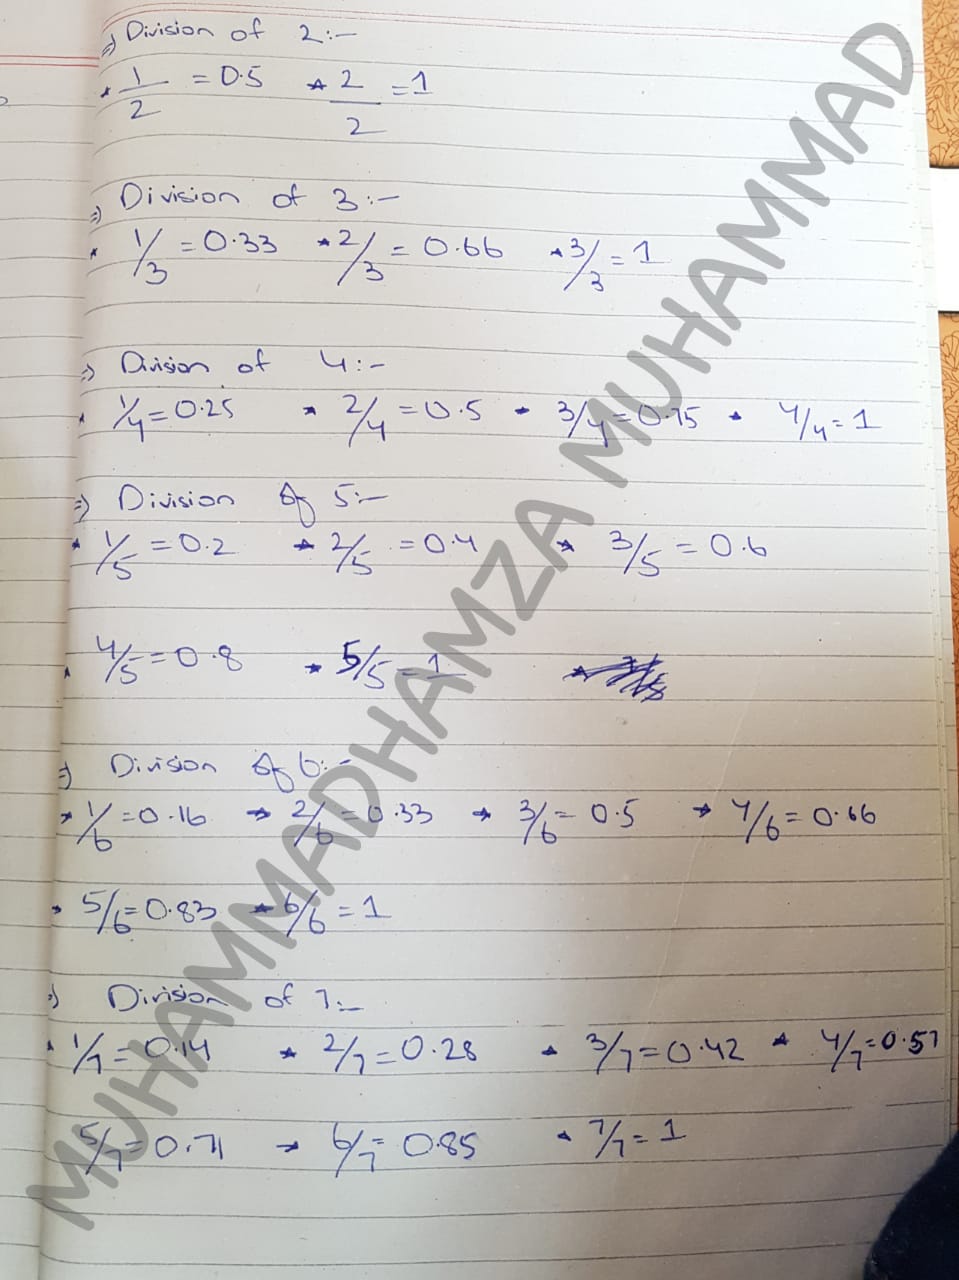 ⇒ Division of 2:-
* 1/2 = 0.5 * 2/2 = 1
⇒ Division of 3:-
* 1/3 = 0.33 * 2/3 = 0.66 * 3/3 = 1
⇒ Division of 4:-
* 1/4 = 0.25 * 2/4 = 0.5 * 3/4 = 0.75 * 4/4 = 1
⇒ Division of 5:-
* 1/5 = 0.2 * 2/5 = 0.4 * 3/5 = 0.6
* 4/5 = 0.8 * 5/5 = 1
⇒ Division of 6:-
* 1/6 = 0.16 * 2/6 = 0.33 * 3/6 = 0.5 * 4/6 = 0.66
* 5/6 = 0.83 * 6/6 = 1
⇒ Division of 7:-
* 1/7 = 0.14 * 2/7 = 0.28 * 3/7 = 0.42 * 4/7 = 0.57
5/7 = 0.71 * 6/7 = 0.85 * 7/7 = 1
MUHAMMADHAMZA MUHAMMAD